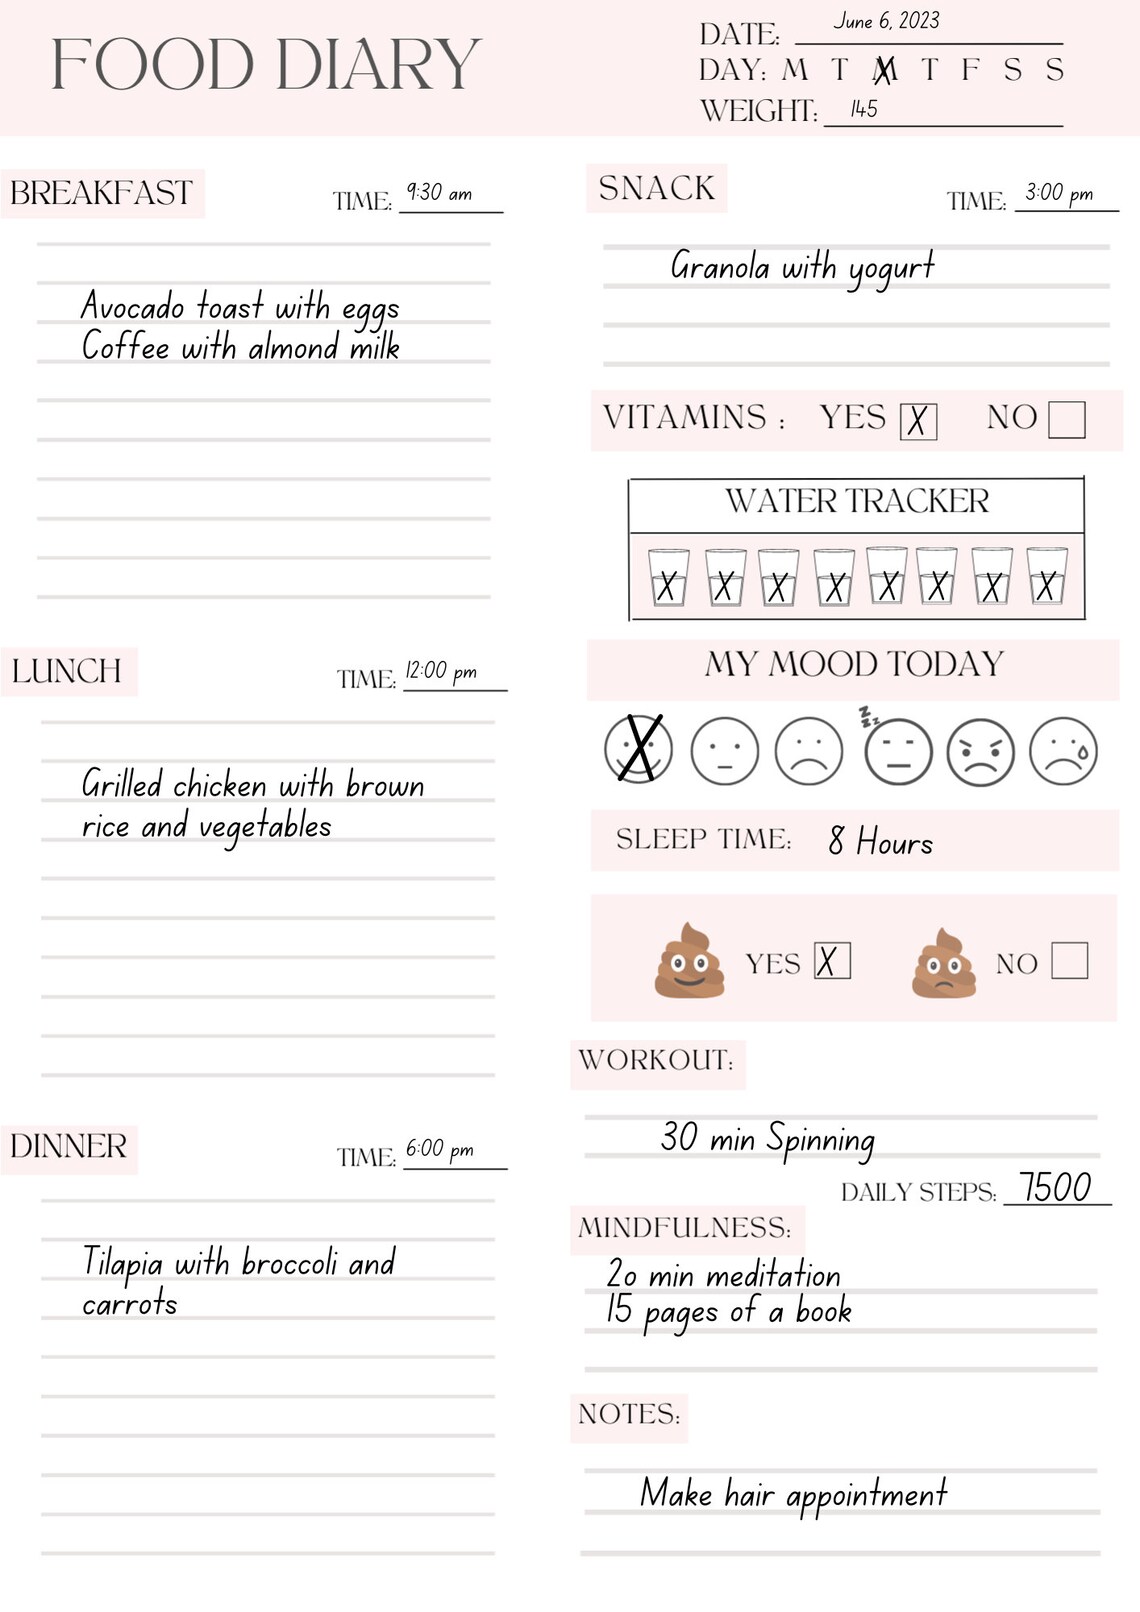 FOOD DIARY
DATE: June 6, 2023
DAY: M T M T F S S
WEIGHT: 145
BREAKFAST
TIME: 9:30 am
Avocado toast with eggs
Coffee with almond milk
LUNCH
TIME: 12:00 pm
Grilled chicken with brown
rice and vegetables
DINNER
TIME: 6:00 pm
Tilapia with broccoli and
carrots
SNACK
TIME: 3:00 pm
Granola with yogurt
VITAMINS : YES X NO
WATER TRACKER
X X X X X X X X
MY MOOD TODAY
X z z z
SLEEP TIME: 8 Hours
YES X NO
WORKOUT:
30 min Spinning
DAILY STEPS: 7500
MINDFULNESS:
20 min meditation
15 pages of a book
NOTES:
Make hair appointment